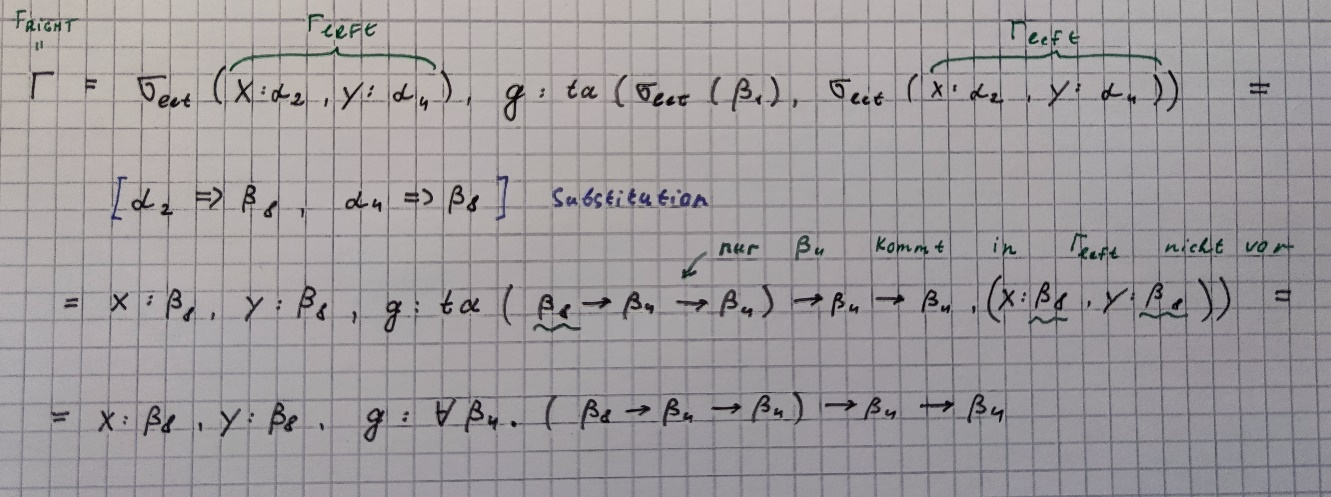 Γ_RIGHT Γ_left Γ_left
"
Γ = σ_let (x:α₂, y:α₄), g: ta (σ_let (β₁), σ_let (x:α₂, y:α₄)) =
[α₂ => β₈, α₄ => β₈] Substitution
nur β₄ kommt in Γ_left nicht vor
= x:β₈, y:β₈, g: ta (β₈ → β₄ → β₄) → β₄ → β₄, (x:β₈, y:β₈)) =
= x:β₈, y:β₈, g: ∀β₄. (β₈ → β₄ → β₄) → β₄ → β₄